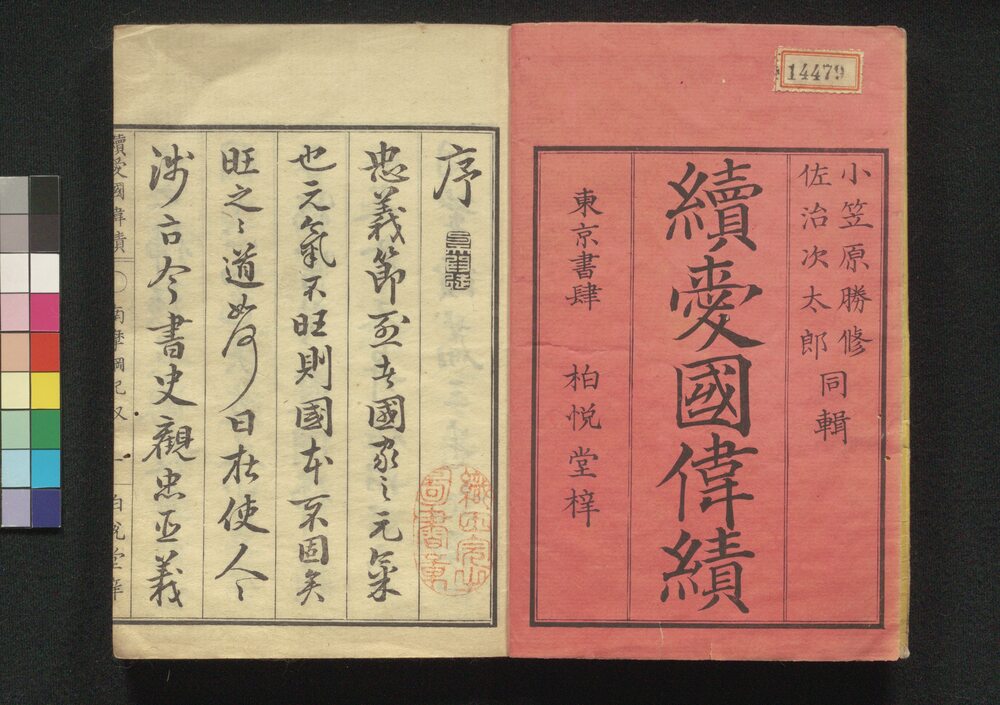 14479
小笠原勝修
佐治次太郎
同輯
續愛國偉績
東京書肆　柏悅堂梓
序
忠義節烈者國家之元氣
也元氣不旺則國本不固矣
旺之之道如何曰在使人人
涉古今書史觀忠臣義
續愛國偉績